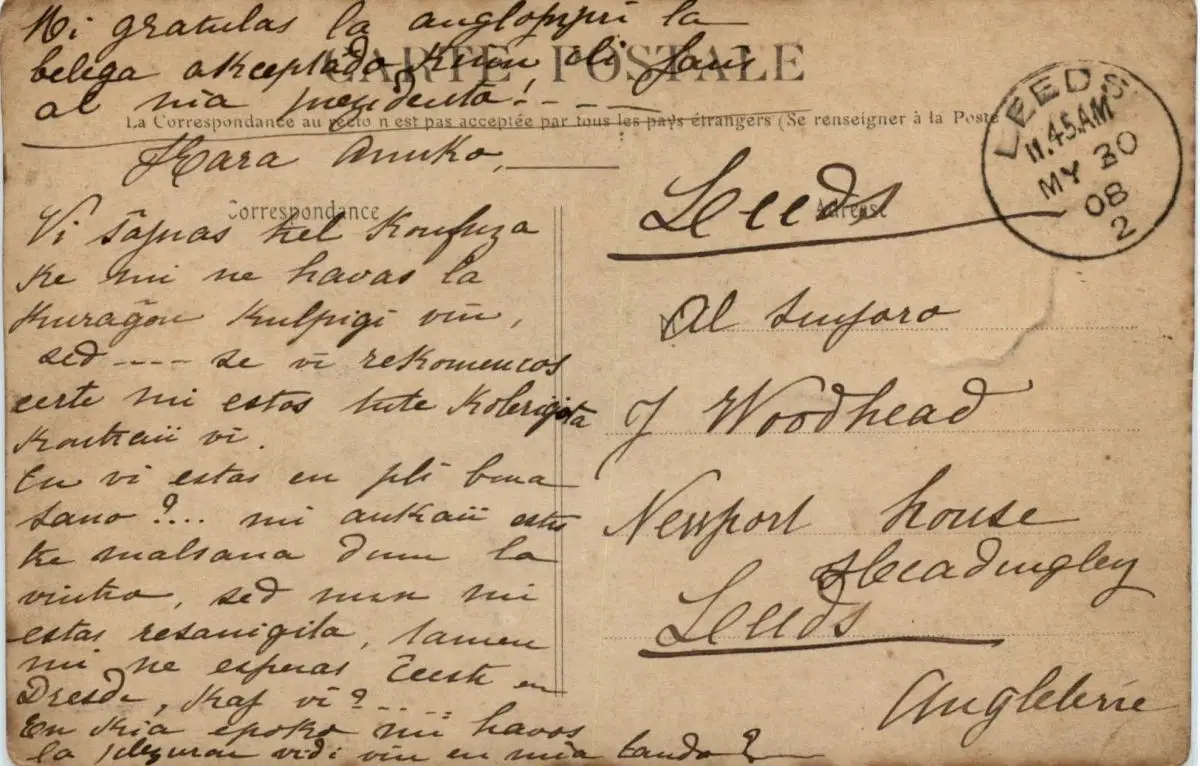 Mi gratulas la
belega akceptado kiun oli faris
al mia prezidanto! - - - -
CARTE POSTALE
La Correspondance au recto n'est pas acceptée par tous les pays étrangers (Se renseigner à la Poste
Kara Amiko,
Correspondance
Vi ŝajnas kel konfuza
ke mi ne havas la
kuraĝon kulpigi vin,
sed ---- se vi rekomencos
certe mi estos tute kolerigota
kontraŭ vi.
Ĉu vi estas en pli bona
sano ?... mi ankaŭ estis
tre malsana dum la
vintro, sed nun mi
estas resanigita, tamen
mi ne esperas ĉeesti en
Dresde, kaj vi? ....
En kia epoko mi havos
la plezuron vidi vin en mia lando?
Adresse
Leeds
Al Sinjoro
J Woodhead
Newport house
Headingley
Leeds
Angleterre
LEEDS
11.45 AM
MY 30
08
2